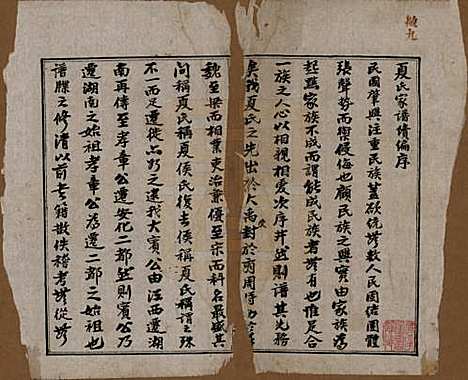 夏氏家譜續編序
民國肇興注重民族蓋欲統 數人民團結團體
張聲勢而禦侵侮也顧民族之興實由家族為
起點家族不成而謂能成民族者 有也惟足合
一族之人心以相親相愛次序井然則譜其先務
矣我夏氏之先出於大禹封於 周
魏至梁而相業吏治兼優至宋而科名最盛其
間稱夏氏稱夏侯氏復去侯稱夏氏稱謂之殊
不一而足遷徙 之途我大賓公由江西遷湖
南再傳至孝章公遷安化二都然則賓公乃
遷湖南之始祖孝章公為遷二都之始祖也
譜牒之修清以前古籍散佚稽考 從